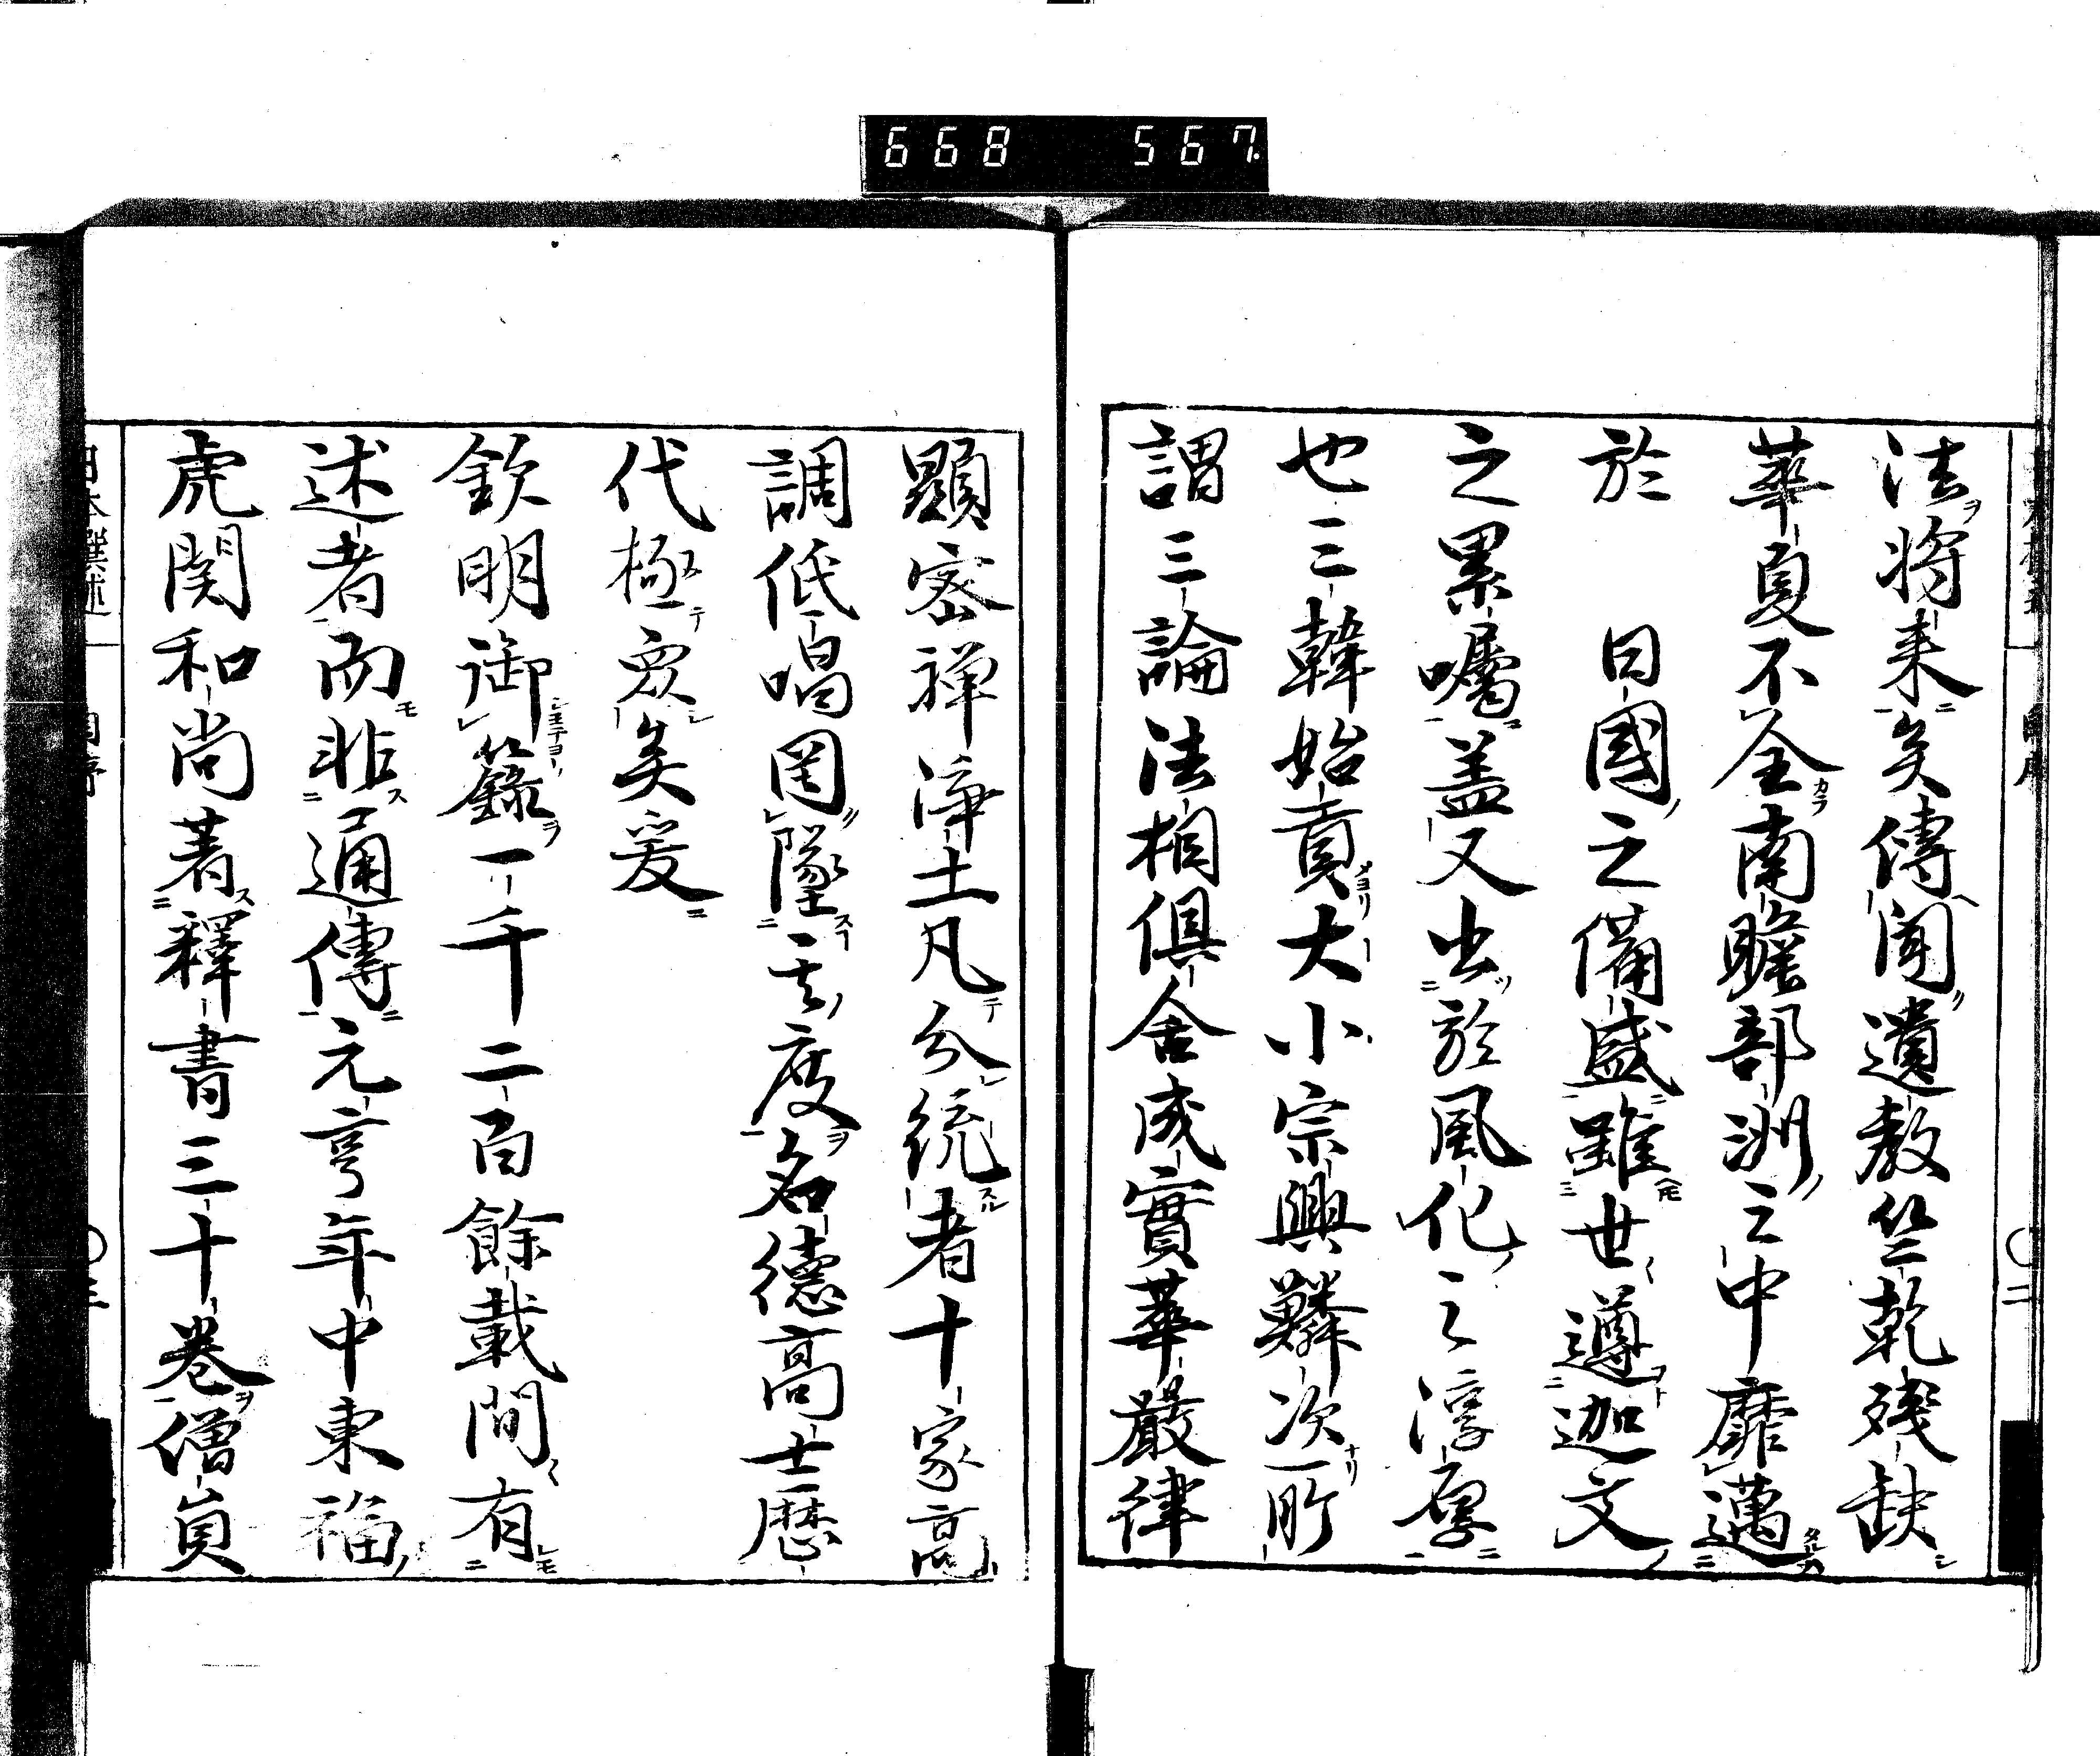 668 567
法將来矣傳聞遺教竺乾殘缺
華夏不全南瞻部洲之中靡邁
於 日國之備盛雖世遵迦文
之累囑盖又出於風化之淳厚
也三韓始貢大小宗興鱗次所
謂三論法相俱舍成實華嚴律
顯密禅浄土凡分統者十家高
調低唱罔墜其度名德高士歷
代極眾矣爰
欽明御籙一千二百餘載間有
述者而非通傳元亨年中東福
虎関和尚著釋書三十卷僧員
日本撰述